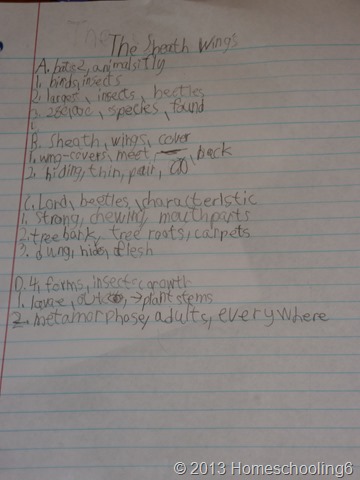 The Sheath Wings
A.
1. birds, insects
2. largest, insects, beetles
3. species, found
B. Sheath, wings, cover
1. wing-covers, meet, back
2. hiding, thin, pair,
C. Lord, beetles, characteristic
1. Strong, chewing mouthparts
2. tree bark, tree roots, carpets
3. dung, hides, flesh
D. 4, forms, insect, growth
1. larvae, → plant stems
2. metamorphose, adults, everywhere
© 2013 Homeschooling6